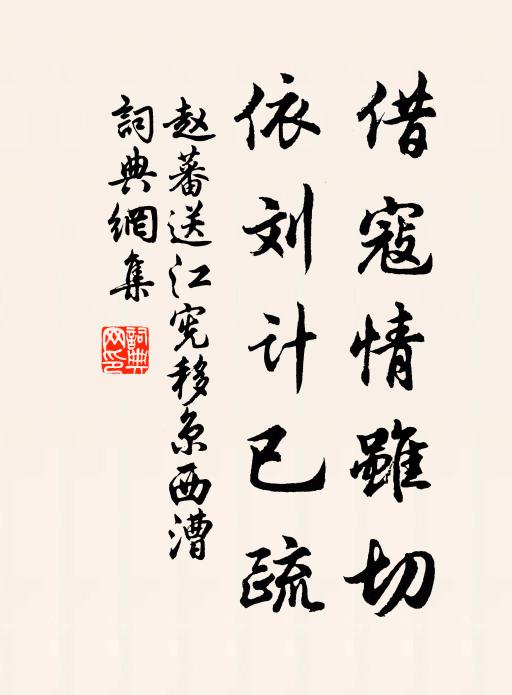 借寇情雖切
依刘计已疏
赵蕃送江宪移京西漕
詞典網集
詞典網印